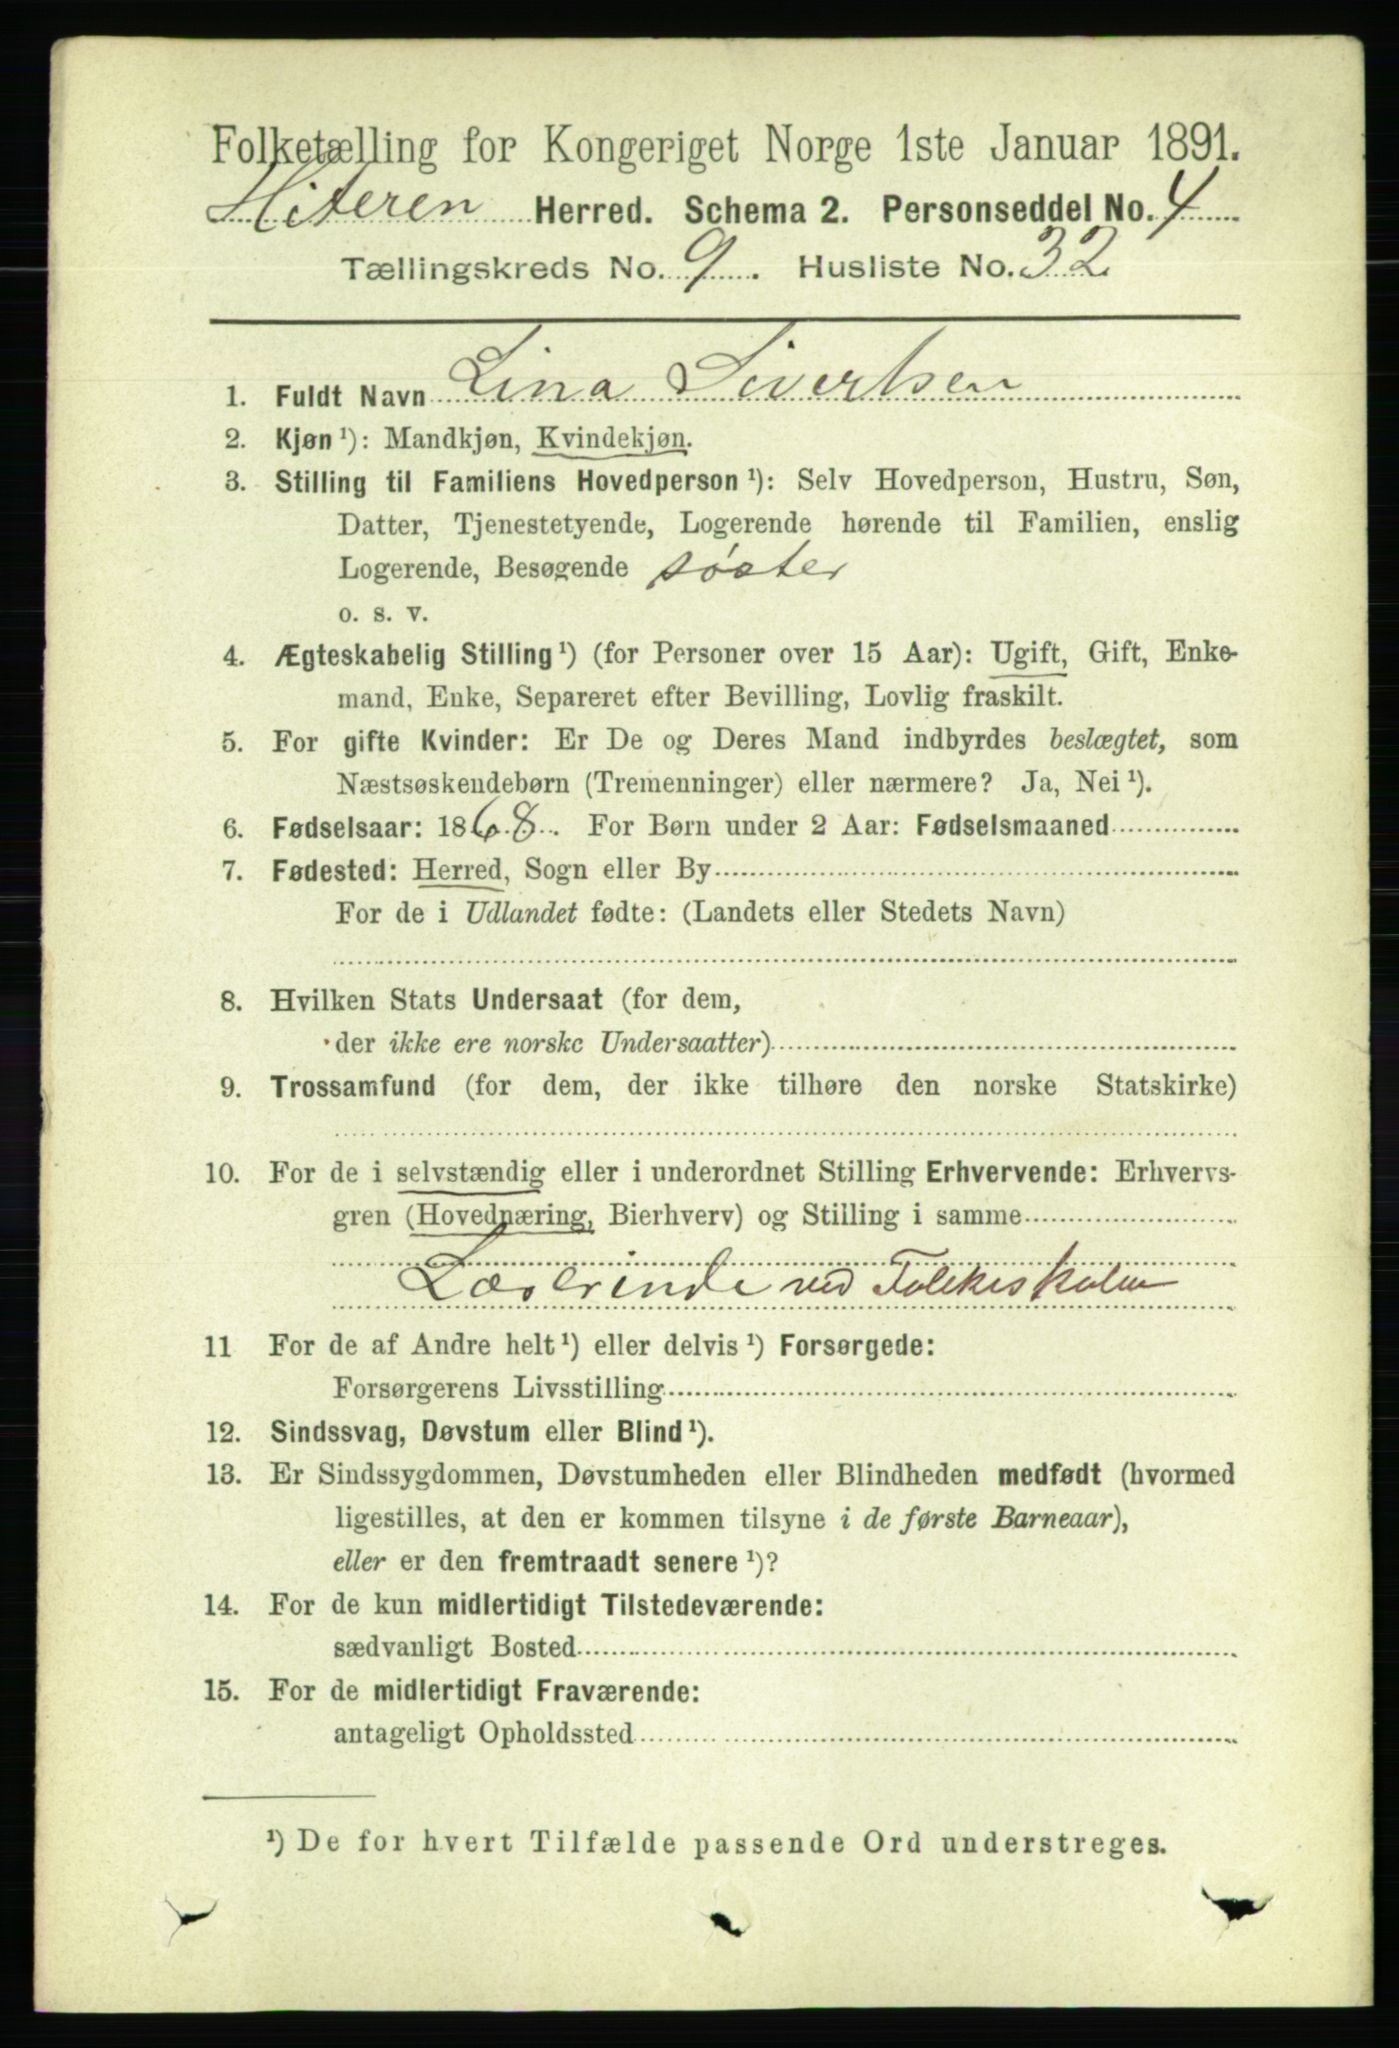 Folketælling for Kongeriget Norge 1ste Januar 1891.
Hiteren Herred. Schema 2. Personseddel No. 4
Tællingskreds No. 9. Husliste No. 32
1. Fuldt Navn Lina Sivertsen
2. Kjøn¹): Mandkjøn, Kvindekjøn.
3. Stilling til Familiens Hovedperson¹): Selv Hovedperson, Hustru, Søn,
Datter, Tjenestetyende, Logerende hørende til Familien, enslig
Logerende, Besøgende søster
o. s. v.
4. Ægteskabelig Stilling¹) (for Personer over 15 Aar): Ugift, Gift, Enke-
mand, Enke, Separeret efter Bevilling, Lovlig fraskilt.
5. For gifte Kvinder: Er De og Deres Mand indbyrdes beslægtet, som
Næstsøskendebørn (Tremenninger) eller nærmere? Ja, Nei¹).
6. Fødselsaar: 1868. For Børn under 2 Aar: Fødselsmaaned
7. Fødested: Herred, Sogn eller By
For de i Udlandet fødte: (Landets eller Stedets Navn)
8. Hvilken Stats Undersaat (for dem,
der ikke ere norske Undersaatter)
9. Trossamfund (for dem, der ikke tilhøre den norske Statskirke)
10. For de i selvstændig eller i underordnet Stilling Erhvervende: Erhvervs-
gren (Hovednæring, Bierhverv) og Stilling i samme
Lærerinde ved Folkeskolen
11 For de af Andre helt¹) eller delvis¹) Forsørgede:
Forsørgerens Livsstilling
12. Sindssvag, Døvstum eller Blind¹).
13. Er Sindssygdommen, Døvstumheden eller Blindheden medfødt (hvormed
ligestilles, at den er kommen tilsyne i de første Barneaar),
eller er den fremtraadt senere¹)?
14. For de kun midlertidigt Tilstedeværende:
sædvanligt Bosted
15. For de midlertidigt Fraværende:
antageligt Opholdssted
¹) De for hvert Tilfælde passende Ord understreges.